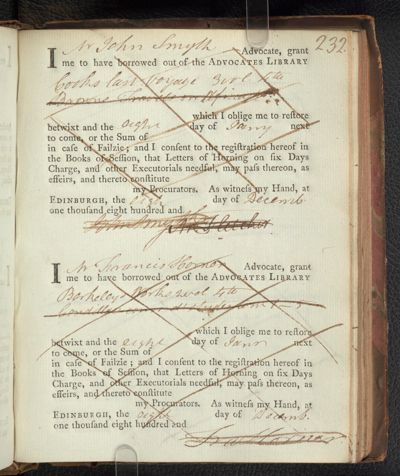 232
I Mr John Smyth Advocate, grant
me to have borrowed out of the ADVOCATES LIBRARY
Cooks last Voyage 3 vol 4to
which I oblige me to reſtore
betwixt and the eight day of Janry next
to come, or the Sum of
in caſe of Failzie; and I conſent to the regiſtration hereof in
the Books of Seſſion, that Letters of Horning on ſix Days
Charge, and other Executorials needful, may paſs thereon, as
effeirs, and thereto conſtitute
my Procurators. As witneſs my Hand, at
EDINBURGH, the eight day of Decemb
one thouſand eight hundred and
John Smyth
I Mr Francis Horner Advocate, grant
me to have borrowed out of the ADVOCATES LIBRARY
Berkeleys Works 2 vol 4to
which I oblige me to reſtore
betwixt and the eight day of Janr next
to come, or the Sum of
in caſe of Failzie; and I conſent to the regiſtration hereof in
the Books of Seſſion, that Letters of Horning on ſix Days
Charge, and other Executorials needful, may paſs thereon, as
effeirs, and thereto conſtitute
my Procurators. As witneſs my Hand, at
EDINBURGH, the eight day of Decemb.
one thouſand eight hundred and
Fra Horner